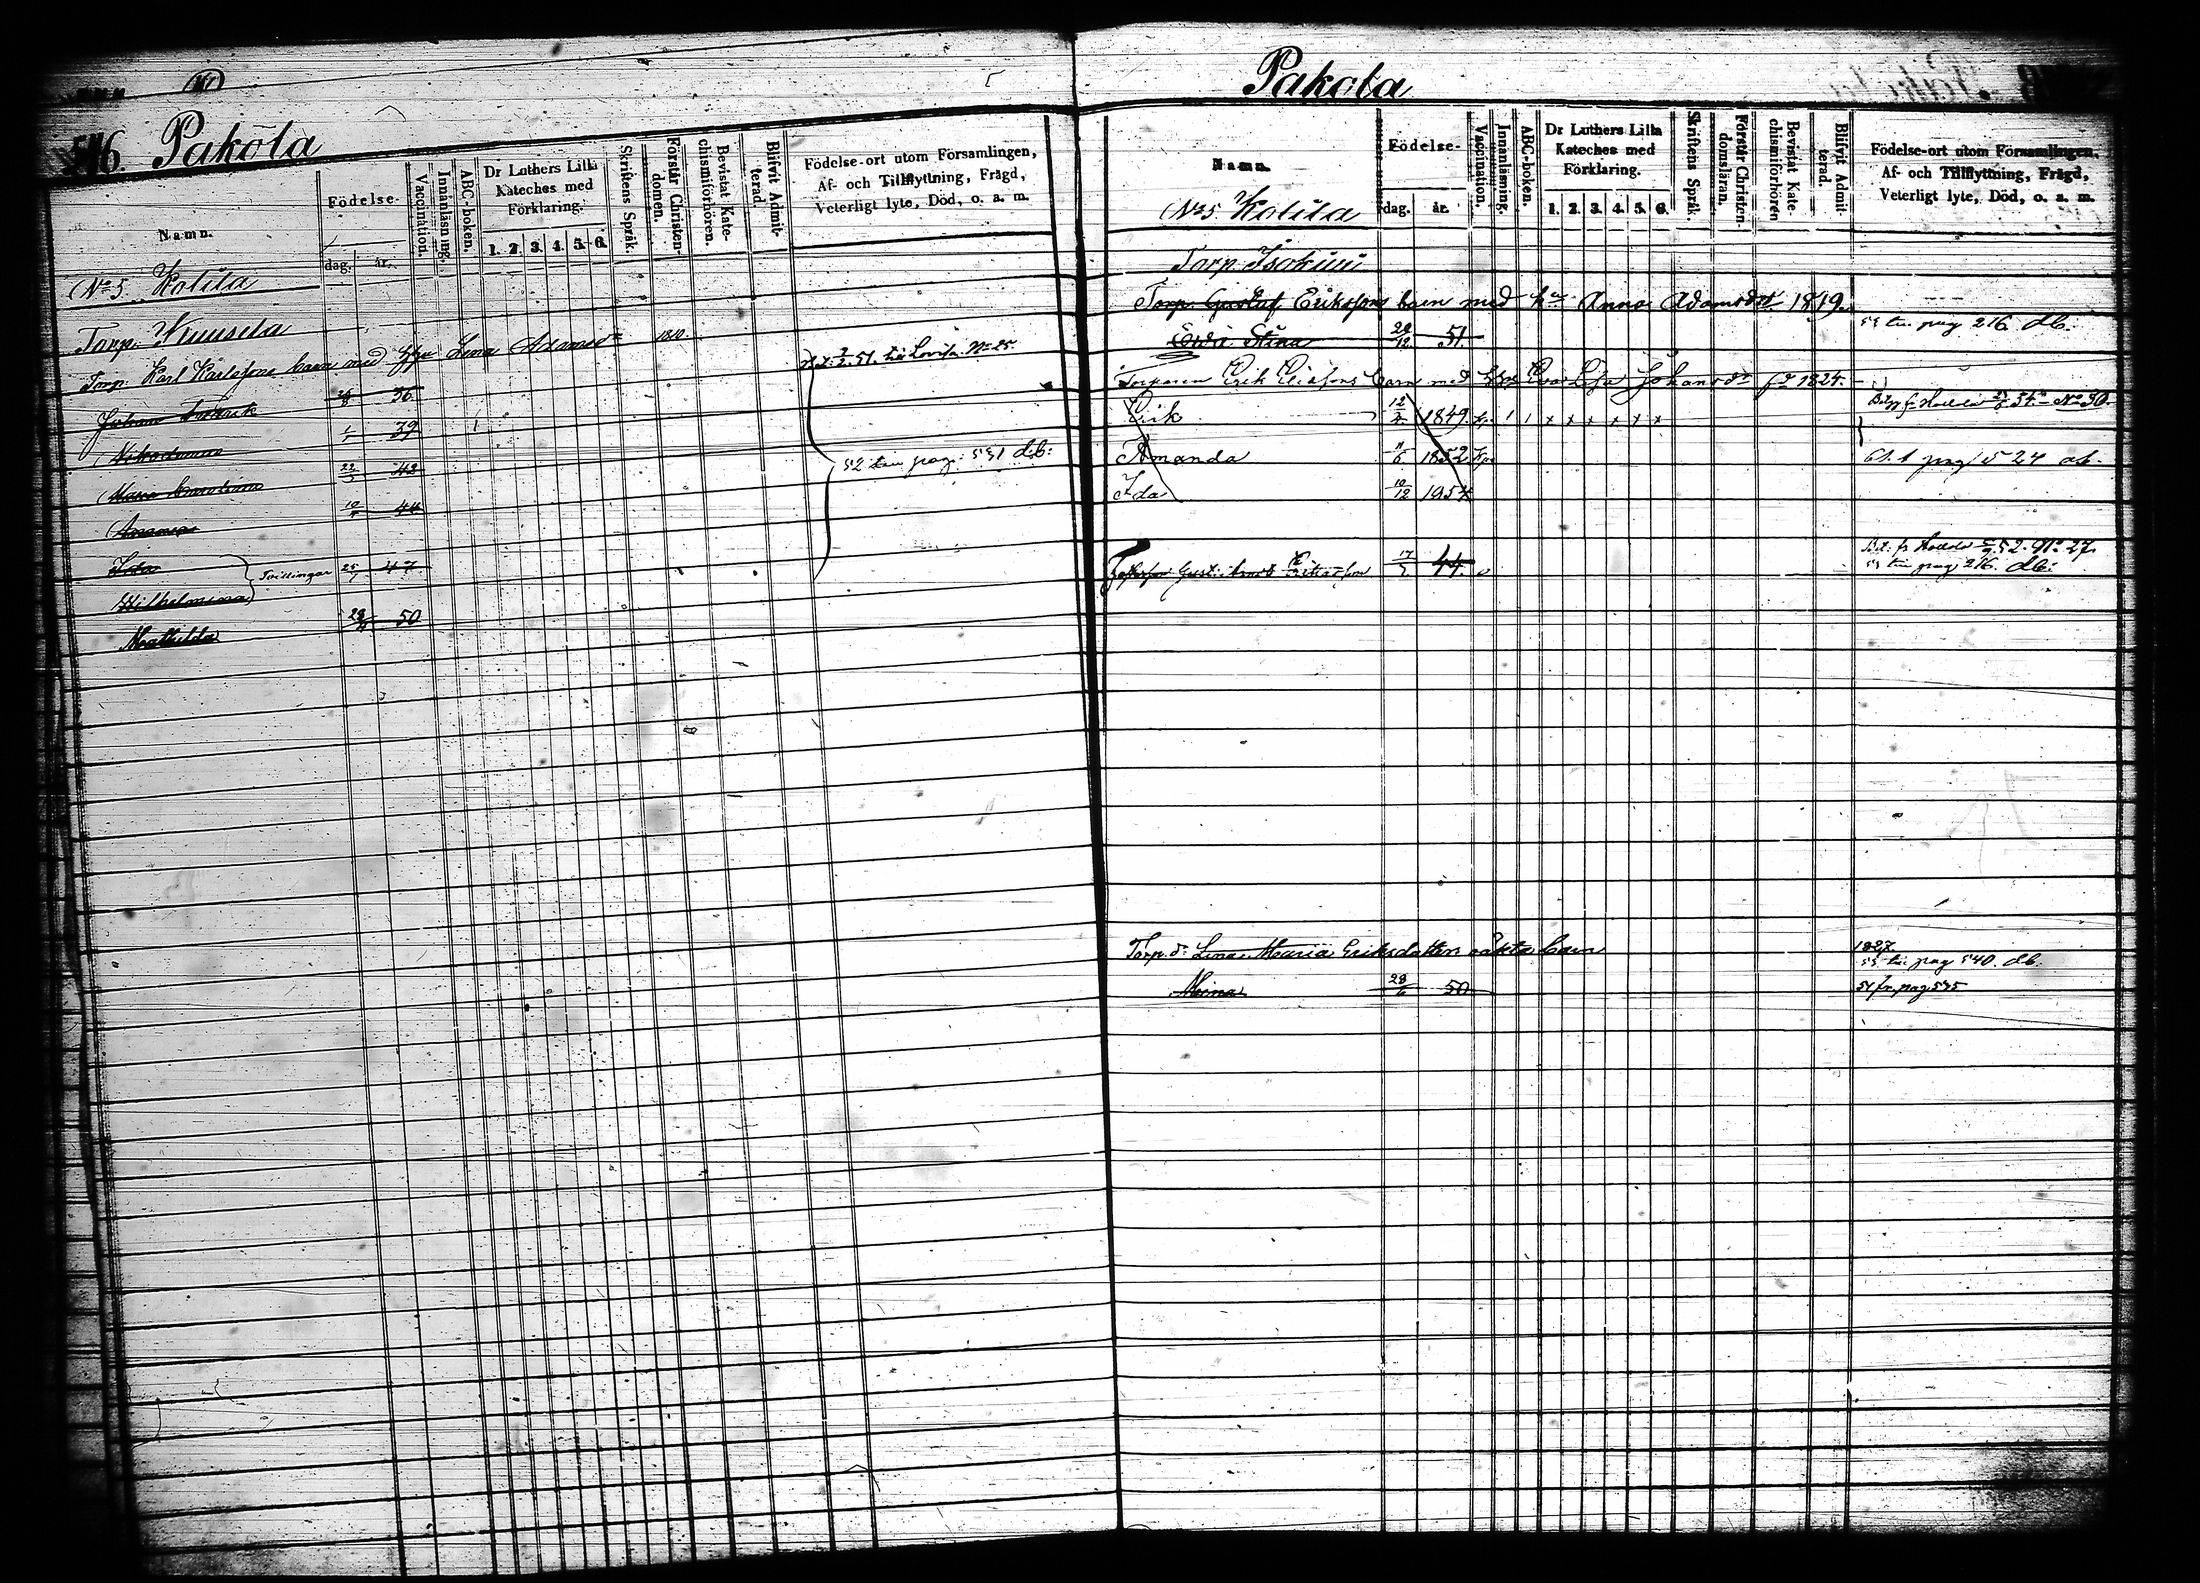 546. Pakola
Namn.
Födelse-
dag. år.
Vaccination.
Innanläsning.
ABC-boken.
Dr Luthers Lilla Kateches med Förklaring.
1. 2. 3. 4. 5. 6.
Skriftens Språk.
Förstår Christendomen.
Bevistat Katechismiförhören.
Blifvit Admitterad.
Födelse-ort utom Församlingen,
Af- och Tillflyttning, Frägd,
Veterligt lyte, Död, o. a. m.
No 5 Kolila
Torp. Kuusela
Torp. Karl Karlssons barn med Lena Adamsd 1810.
51. till Lovisa No 25.
Johan Fredrik 36
Nikodemus 1/1 39
Maria 42
Amanda 44
52 till pag: 531 db:
Ida
Wilhelmina } Tvillingar 25/1 47
Mathilda 50
Pakola
Namn.
Födelse-
dag. år.
Vaccination.
Innanläsning.
ABC-boken.
Dr Luthers Lilla Kateches med Förklaring.
1. 2. 3. 4. 5. 6.
Skriftens Språk.
Förstår Christendomsläran.
Bevistat Katechismiförhören
Blifvit Admitterad.
Födelse-ort utom Församlingen,
Af- och Tillflyttning, Frägd,
Veterligt lyte, Död, o. a. m.
No 5 Kolila
Torp. Isokuu
Torp. Gustaf Erikssons barn med Anna Adamsdtr 1819.
Eva Stina 28/12 51. 53 till pag 216 db.
Torparen Erik Eliassons barn med Eva Lisa Johansdr 1824.
Erik 12/2 1849. 54. No 30.
Amanda 11/6 1852 pag 524
Ida 10/12 1954
Gust. 17/5 44. 52. No 27.
53 till pag 216. db.
Torp. dr Lena Maria Eriksdotters oäkta barn 1827
53 till pag 540. db.
Mina 28/6 50 51 fr. pag 535